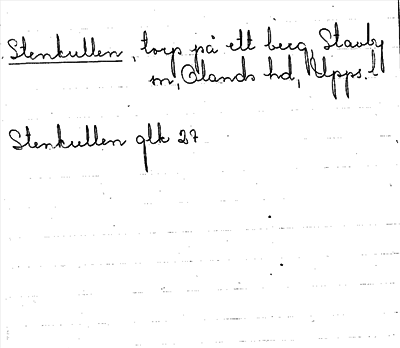 Stenkullen, torp på ett berg, Stavby
sn, Olands hd, Upps. l
Stenkullen glk 27